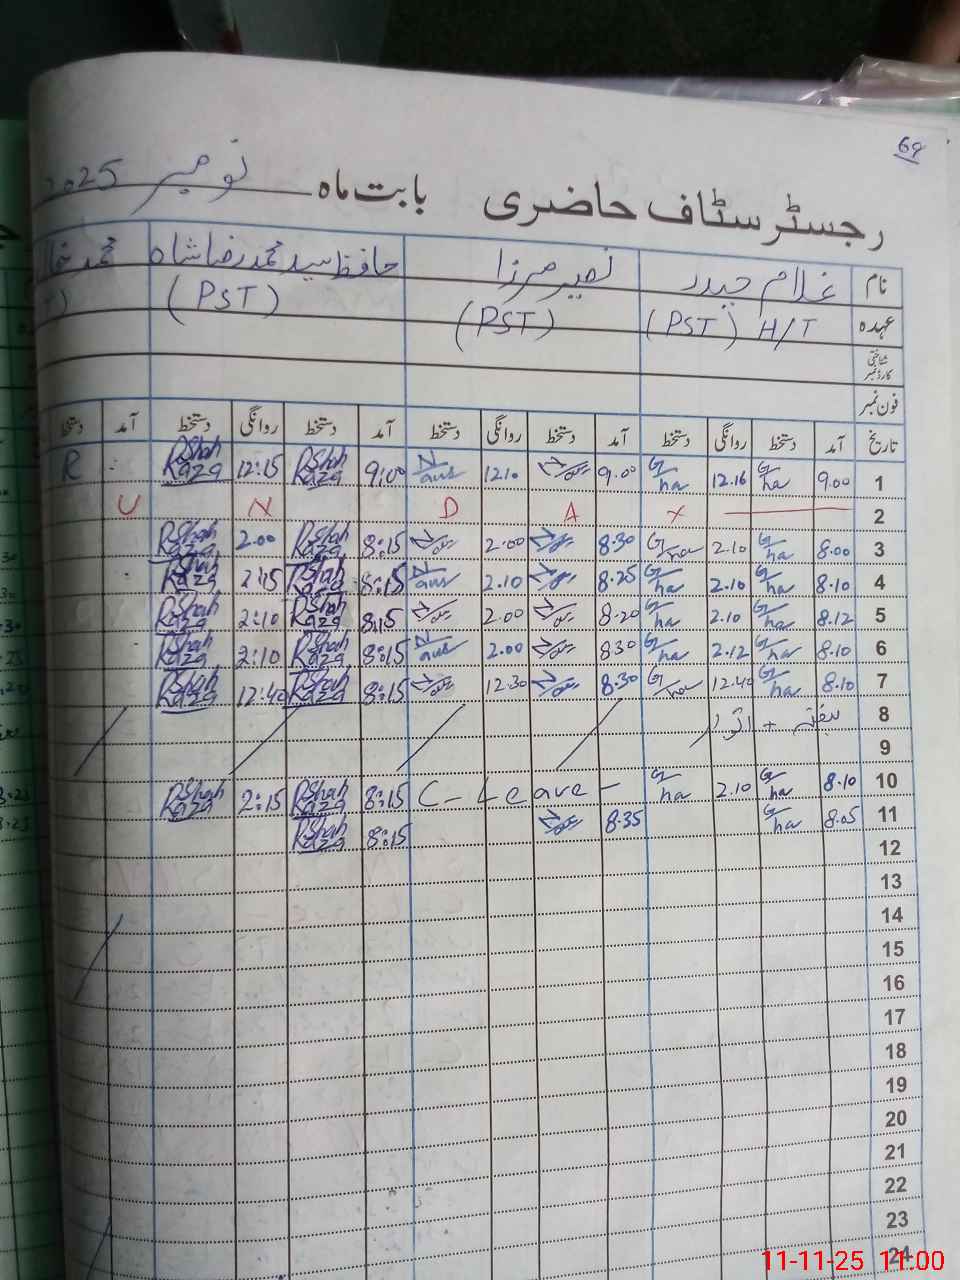 69
رجسٹر سٹاف حاضری بابت ماہ نومبر 2025
نام غلام حیدر نصیر مرزا حافظ سید محمد رضا شاہ محمد
عہدہ (PST) H/T (PST) (PST)
شناختی کارڈ نمبر
فون نمبر
تاریخ آمد دستخط روانگی دستخط آمد دستخط روانگی دستخط آمد دستخط روانگی دستخط آمد دستخط
1 9.00 G/ha 12.16 G/ha 9.00 12.10 N/aus 9:00 RShah Raza 12:15 RShah Raza R
2 X A D N U
3 8.00 G/ha 2.10 G/ha 8.30 2.00 8:15 RShah Raza 2.00 RShah Raza
4 8.10 G/ha 2.10 G/ha 8.25 2.10 N/aus 8:15 RShah Raza 2:15 RShah Raza
5 8.12 G/ha 2.10 G/ha 8.20 2.00 8:15 RShah Raza 2:10 RShah Raza
6 8.10 G/ha 2.12 G/ha 8.30 2.00 N/aus 8:15 RShah Raza 2:10 RShah Raza
7 8.10 G/ha 12.40 G/ha 8.30 12.30 8:15 RShah Raza 12:40 RShah Raza
8 ہفتہ + اتوار
9
10 8.10 G/ha 2.10 G/ha C - Leave - 8:15 RShah Raza 2:15 RShah Raza
11 8.05 G/ha 8.35 8:15 RShah Raza
12
13
14
15
16
17
18
19
20
21
22
23
24
11-11-25 11:00